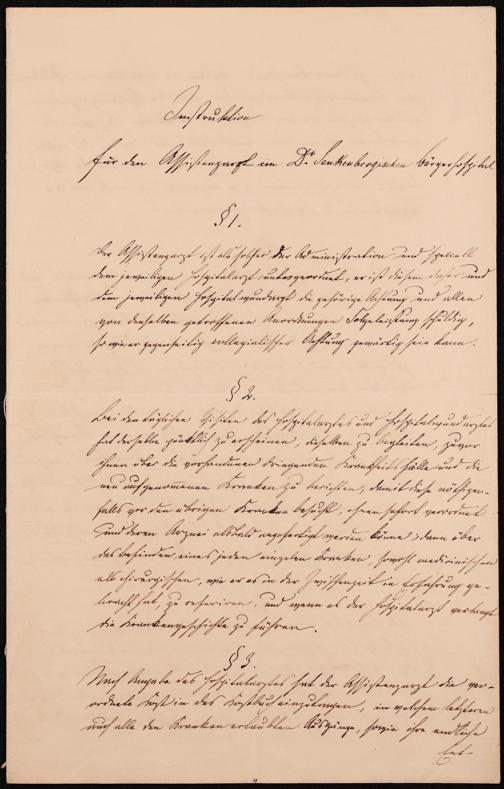 Instruktion
für den Assistenzarzt im Dr. Senkenbergischen Bürgerhospital
§ 1.
Der Assistenzarzt ist als solcher der Administration und speciell
dem jeweiligen Hospitalarzt untergeordnet, er ist diesem daher und
dem jeweiligen Hospitalwundarzt die gehörige Achtung und allen
von denselben getroffenen Anordnungen Folgeleistung schuldig,
so wie er gegenseitig collegialischer Achtung gewärtig sein kann.
§ 2.
Bei den täglichen Visiten des Hospitalarztes und Hospitalwundarztes
hat derselbe pünktlich zu erscheinen, dieselben zu begleiten, zuvor
ihnen über die vorhandenen dringenden Krankheitsfälle und die
neu aufgenommenen Kranken zu berichten, damit diese nöthigen-
falls vor den übrigen Kranken besucht, ihnen sofort verordnet
und deren Arznei alsbald angefertigt werden könne; dann über
das Befinden eines jeden einzelnen Kranken, sowohl medicinischen
als chirurgischen, wie er es in der Zwischenzeit in Erfahrung ge-
bracht hat, zu referiren, und wenn es der Hospitalarzt verlangt
die Krankengeschichte zu führen.
§ 3.
Nach Angabe des Hospitalarztes hat der Assistenzarzt die ver-
ordnete Kost in das Kostbuch einzutragen, in welchem letzteren
auch alle den Kranken erlaubten Ausgänge, sowie ihre endliche
Ent-